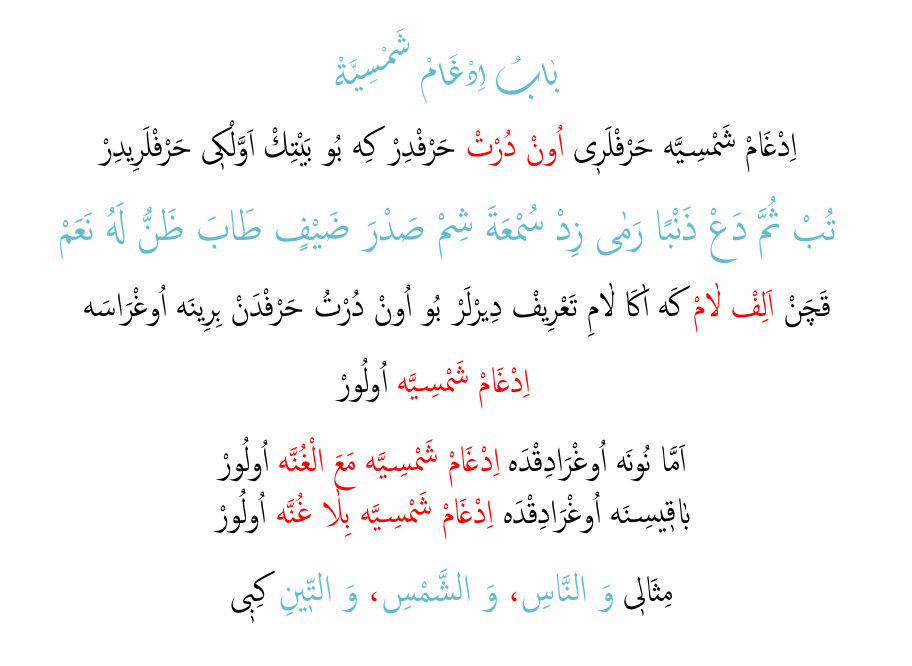 بٰابُ اِدْغَامْ شَمْسِيَّةْ
اِدْغَامْ شَمْسِيَّه حَرْفْلَرٖى اُونْ دُرْتْ حَرْفْدِرْ كِه بُو بَيْتِكْ اَوَّلْكٖى حَرْفْلَرِيدِرْ
تُبْ ثُمَّ دَعْ ذَنْبًا رَمٰى زِدْ سُمْعَةَ شِمْ صَدْرَ ضَيْفٍ طَابَ ظَنٌّ لَهُ نَعَمْ
قَچَنْ اَلِفْ لٰامْ كَه اَكَا لٰامِ تَعْرِيفْ دِيرْلَرْ بُو اُونْ دُرْتُ حَرْفْدَنْ بِرِينَه اُوغْرَاسَه
اِدْغَامْ شَمْسِيَّه اُولُورْ
اَمَّا نُونَه اُوغْرَادِقْدَه اِدْغَامْ شَمْسِيَّه مَعَ الْغُنَّه اُولُورْ
بٰاقٖيسِنَه اُوغْرَادِقْدَه اِدْغَامْ شَمْسِيَّه بِلٰا غُنَّه اُولُورْ
مِثَالٖى وَ النَّاسِ، وَ الشَّمْسِ، وَ التّٖينِ كِبٖى